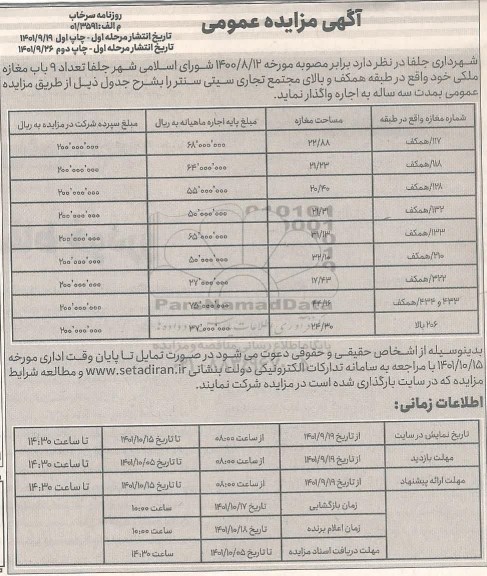 روزنامه سرخاب
م الف:۰۱/۳۵۹۱
تاریخ انتشار مرحله اول - چاپ اول ۱۴۰۱/۹/۱۹
تاریخ انتشار مرحله اول - چاپ دوم ۱۴۰۱/۹/۲۶
آگهی مزایده عمومی
شهرداری جلفا در نظر دارد برابر مصوبه مورخه ۱۴۰۰/۸/۱۲ شورای اسلامی شهر جلفا تعداد ۹ باب مغازه
ملکی خود واقع در طبقه همکف و بالای مجتمع تجاری سیتی سنتر را بشرح جدول ذیل از طریق مزایده
عمومی بمدت سه ساله به اجاره واگذار نماید.
شماره مغازه واقع در طبقه مساحت مغازه مبلغ پایه اجاره ماهیانه به ریال مبلغ سپرده شرکت در مزایده به ریال
۱۱۷/همکف ۲۲/۸۸ ۶۸٬۰۰۰٬۰۰۰ ۲۰۰٬۰۰۰٬۰۰۰
۱۱۸/همکف ۲۱/۲۳ ۶۴٬۰۰۰٬۰۰۰ ۲۰۰٬۰۰۰٬۰۰۰
۱۲۸/همکف ۲۰/۴۰ ۵۵٬۰۰۰٬۰۰۰ ۲۰۰٬۰۰۰٬۰۰۰
۱۳۲/همکف ۵۰٬۰۰۰٬۰۰۰ ۲۰۰٬۰۰۰٬۰۰۰
۱۳۳/همکف ۶۵٬۰۰۰٬۰۰۰ ۲۰۰٬۰۰۰٬۰۰۰
۲۱۰/همکف ۳۲/۱۰ ۵۰٬۰۰۰٬۰۰۰ ۲۰۰٬۰۰۰٬۰۰۰
۳۲۲/همکف ۱۷/۴۳ ۲۷٬۰۰۰٬۰۰۰ ۲۰۰٬۰۰۰٬۰۰۰
۴۳۳ و ۴۳۴/همکف ۷۵٬۰۰۰٬۰۰۰ ۲۰۰٬۰۰۰٬۰۰۰
۲۰۶ بالا ۲۴/۳۰ ۳۷٬۰۰۰٬۰۰۰ ۲۰۰٬۰۰۰٬۰۰۰
ParsNamadData
پایگاه اطلاع رسانی مناقصه و مزایده
بدینوسیله از اشخاص حقیقی و حقوقی دعوت می شود در صورت تمایل تا پایان وقت اداری مورخه
۱۴۰۱/۱۰/۱۵ با مراجعه به سامانه تدارکات الکترونیکی دولت بنشانی www.setadiran.ir و مطالعه شرایط
مزایده که در سایت بارگذاری شده است در مزایده شرکت نمایند.
اطلاعات زمانی:
تاریخ نمایش در سایت از تاریخ ۱۴۰۱/۹/۱۹ از ساعت ۰۸:۰۰ تا تاریخ ۱۴۰۱/۱۰/۱۵ تا ساعت ۱۴:۳۰
مهلت بازدید از تاریخ ۱۴۰۱/۹/۱۹ از ساعت ۰۸:۰۰ تا تاریخ ۱۴۰۱/۱۰/۰۵ تا ساعت ۱۴:۳۰
مهلت ارائه پیشنهاد از تاریخ ۱۴۰۱/۹/۱۹ از ساعت ۰۸:۰۰ تا تاریخ ۱۴۰۱/۱۰/۱۵ تا ساعت ۱۴:۳۰
زمان بازگشایی تاریخ ۱۴۰۱/۱۰/۱۷ ساعت ۱۰:۰۰
زمان اعلام برنده تاریخ ۱۴۰۱/۱۰/۱۸ ساعت ۱۰:۰۰
مهلت دریافت اسناد مزایده تا تاریخ ۱۴۰۱/۱۰/۰۵ ساعت ۱۴:۳۰